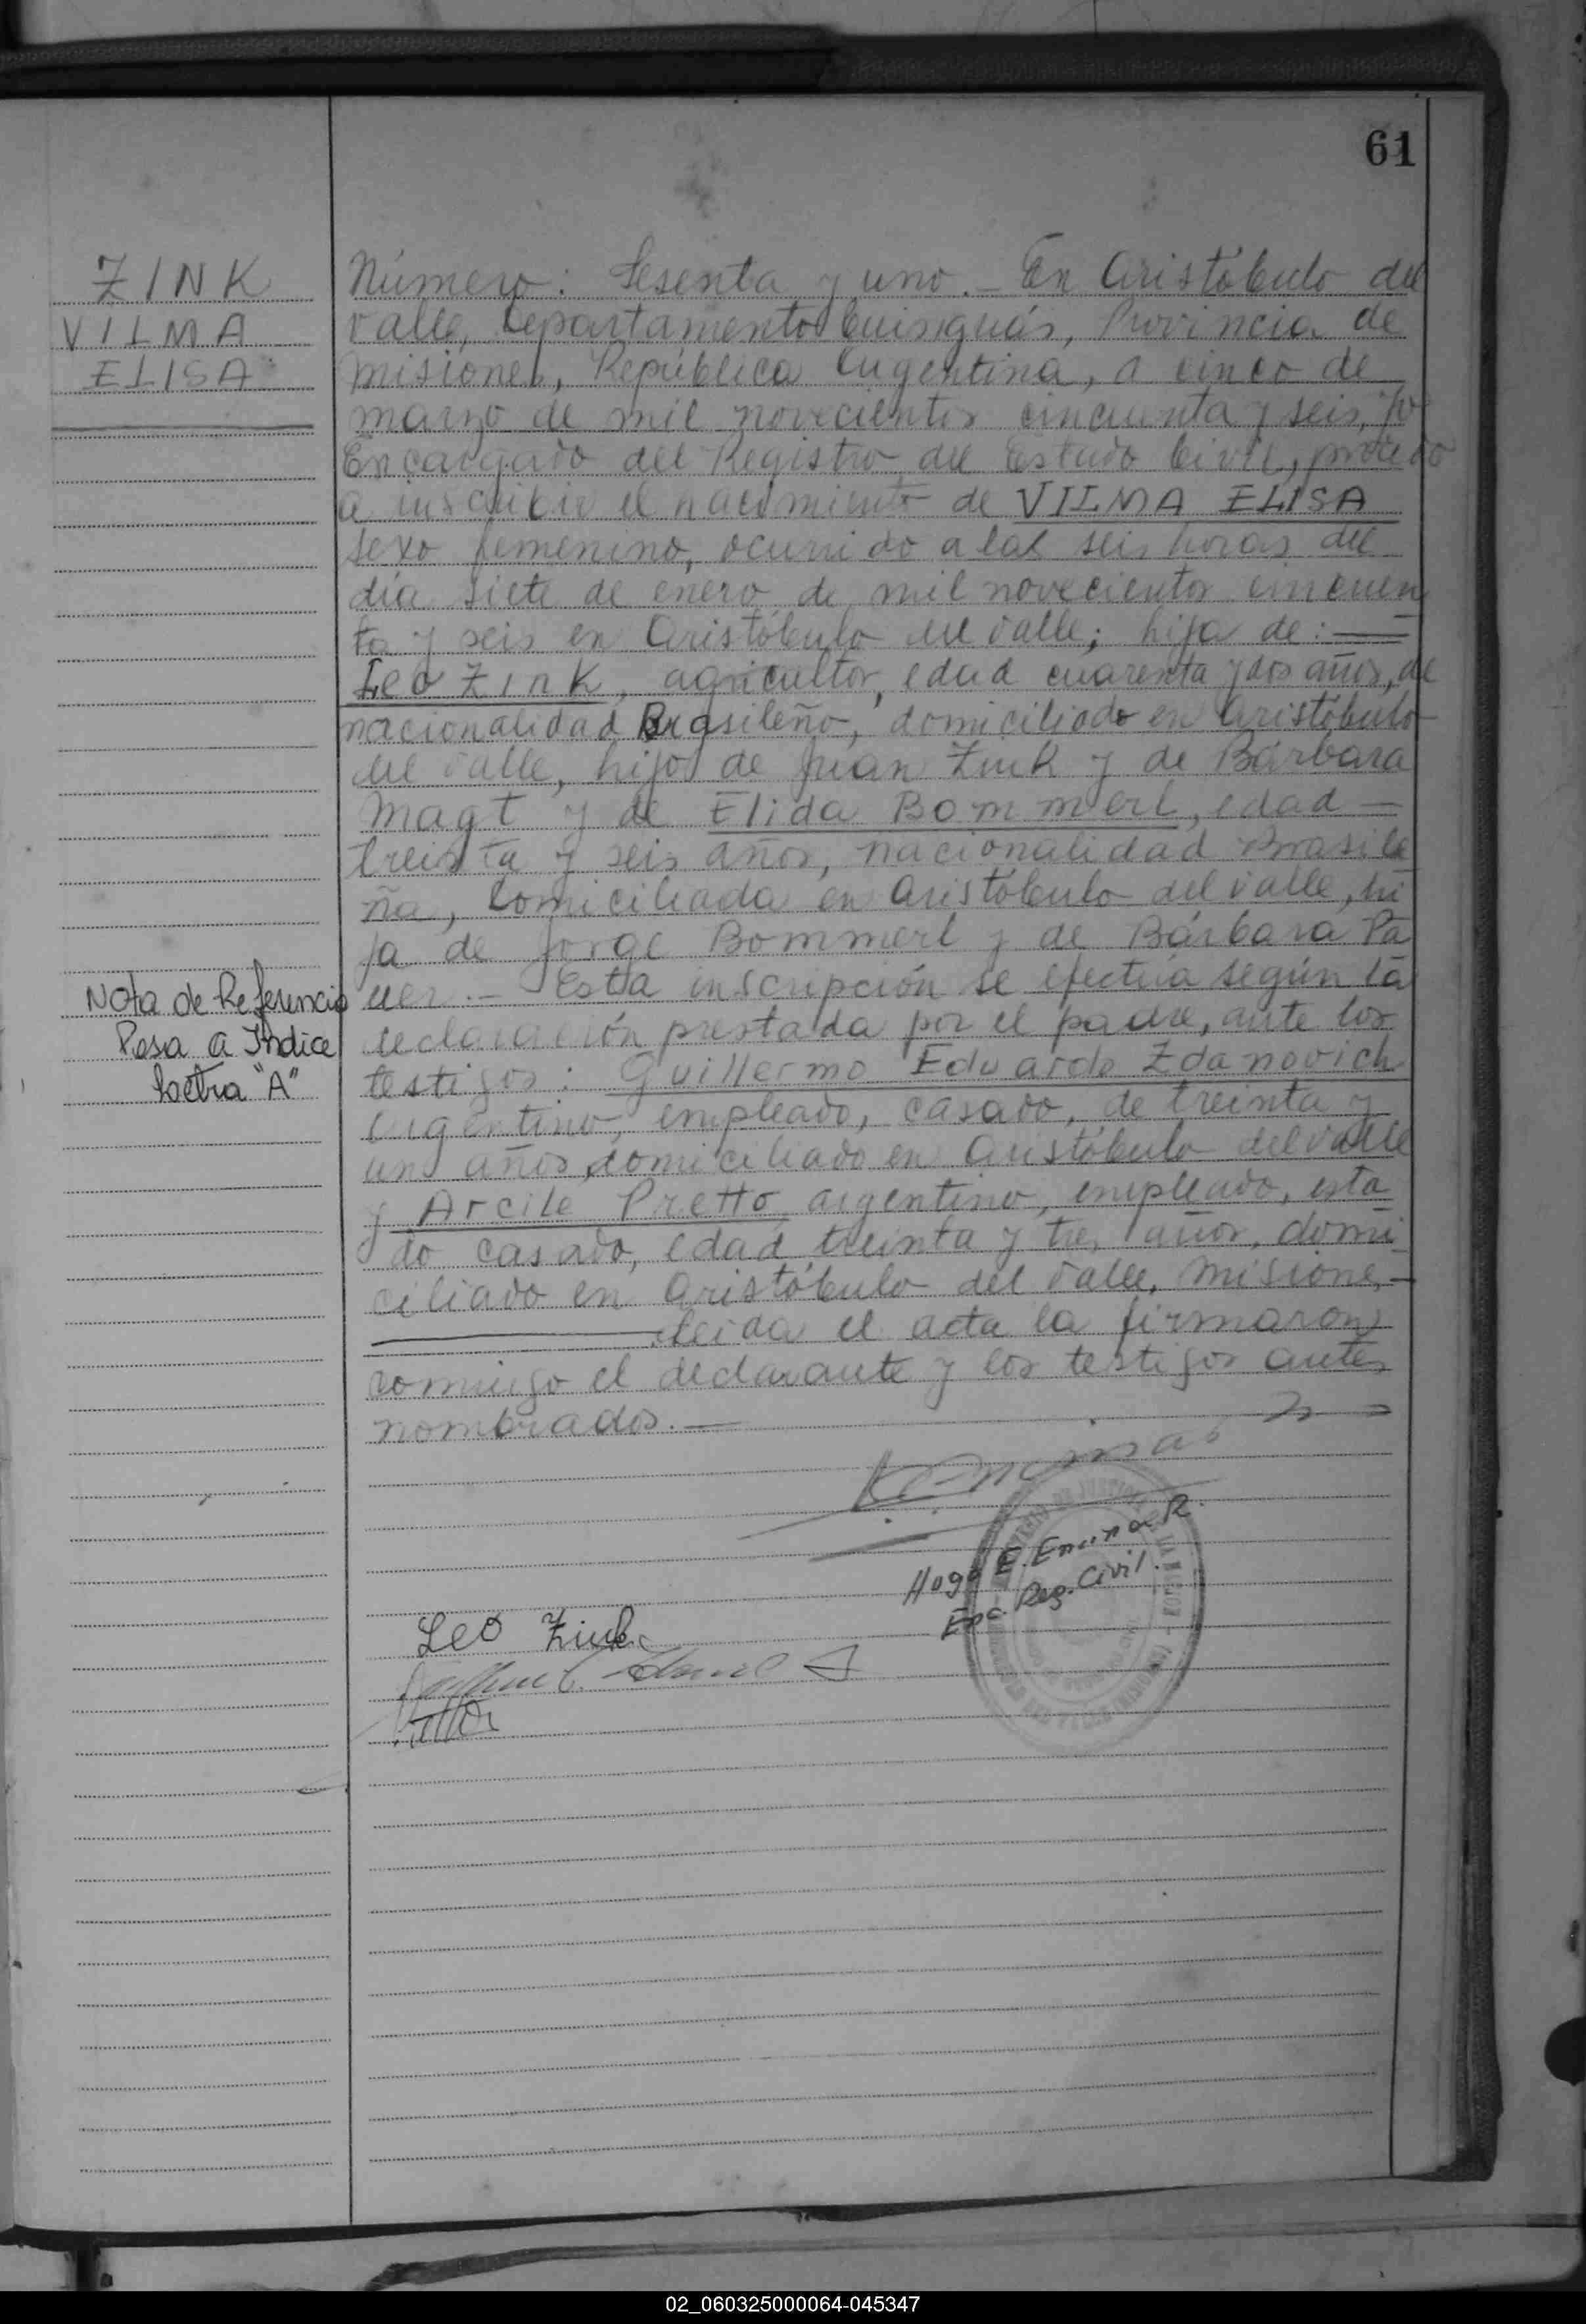 61
ZINK
VILMA
ELISA
Número: Sesenta y uno.- En Aristóbulo del
Valle, Departamento Cuinguás, Provincia de
Misiones, República Argentina, a cinco de
marzo de mil novecientos cincuenta y seis, yo
Encargado del Registro del Estado Civil, procedo
a inscribir el nacimiento de VILMA ELISA
sexo femenino, ocurrido a las seis horas del
día siete de enero de mil novecientos cincuen
ta y seis en Aristóbulo del Valle; hija de:
Leo Zink, agricultor, edad cuarenta y dos años, de
nacionalidad Brasileño, domiciliado en Aristóbulo
del Valle, hijo de Juan Zink y de Bárbara
Magt y de Elida Bommerl, edad
treinta y seis años, nacionalidad Brasile
ña, domiciliada en Aristóbulo del Valle, hi
ja de Jorge Bommerl y de Bárbara Pa
uer.- Esta inscripción se efectúa según la
declaración prestada por el padre, ante los
testigos: Guillermo Eduardo Zdanovich
argentino, empleado, casado, de treinta y
un años, domiciliado en Aristóbulo del Valle
y Arcile Pretto, argentino, empleado, esta
do casado, edad treinta y tres años, domi
ciliado en Aristóbulo del Valle, Misiones-
Leída el acta la firmaron
conmigo el declarante y los testigos antes
nombrados.-
Nota de Referencia
Pasa a Indice
Letra "A"
Hugo E. Encina R.
Enc. Reg. Civil.
Leo Zink
02_060325000064-045347